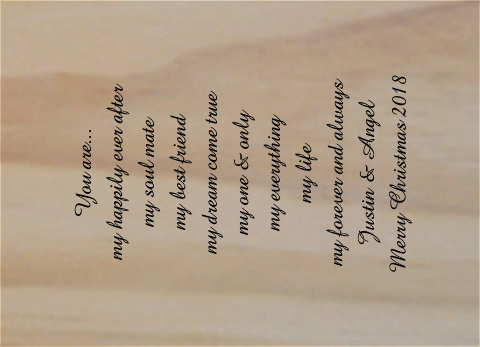 You are...
my happily ever after
my soul mate
my best friend
my dream come true
my one & only
my everything
my life
my forever and always
Justin & Angel
Merry Christmas 2018